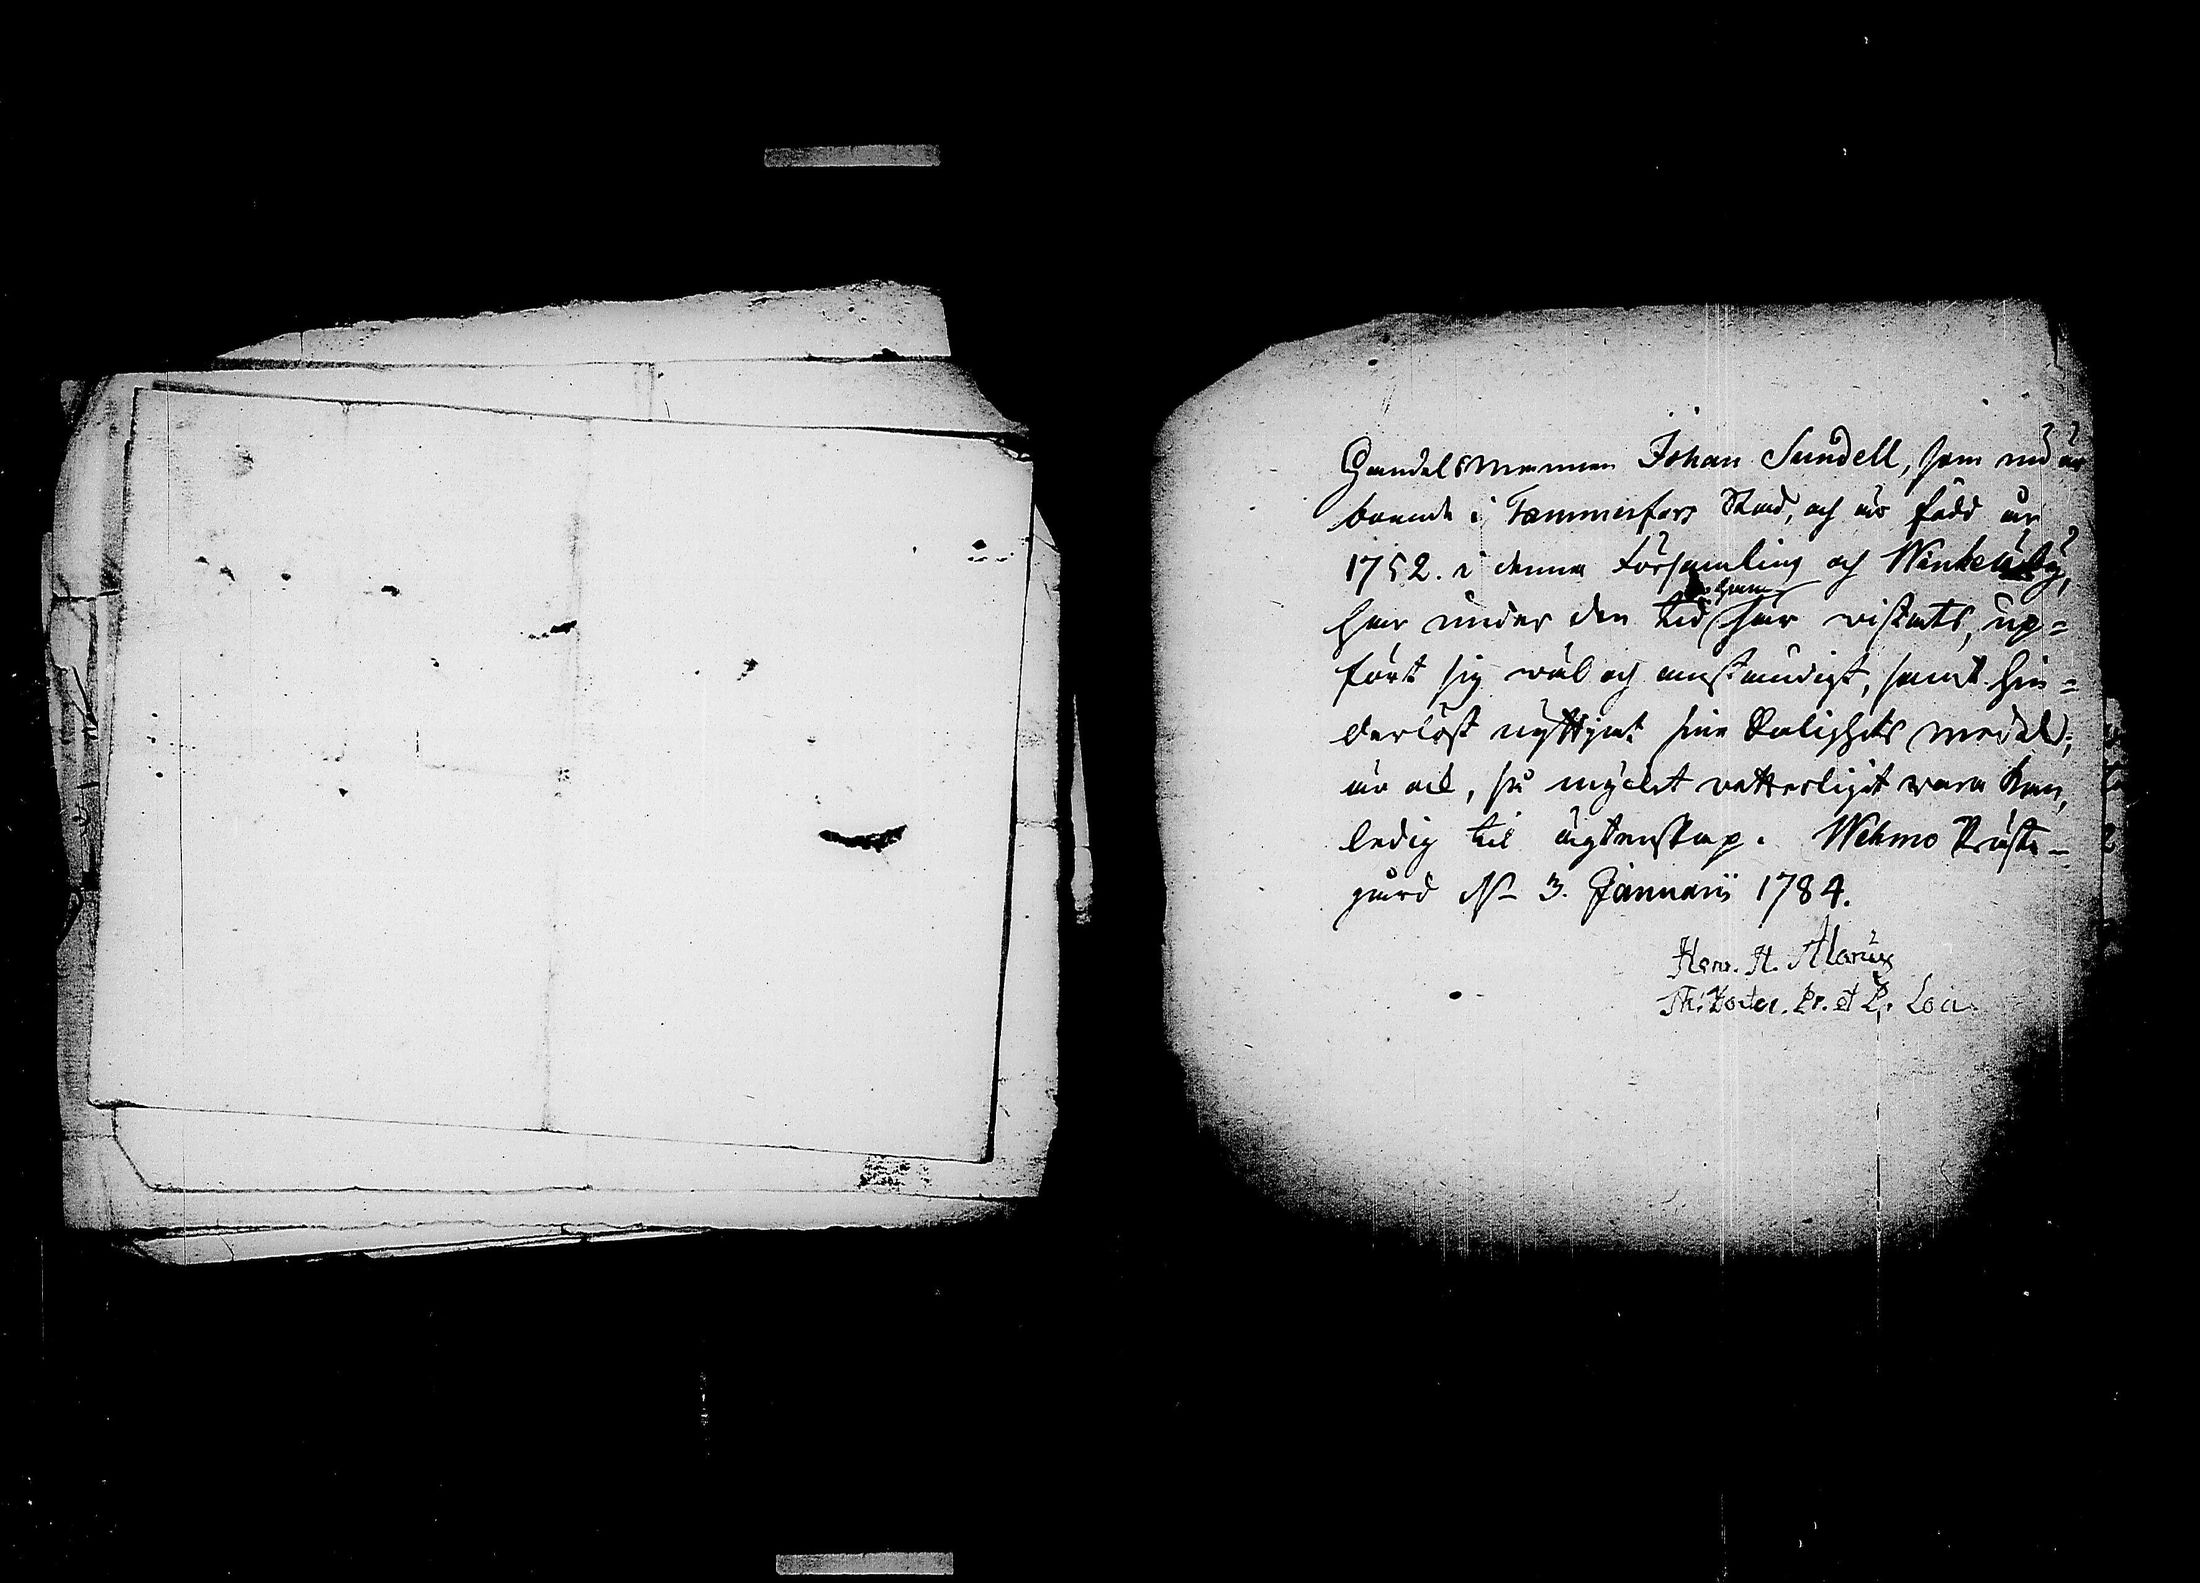 Handelsmannen Johan Sundell, som nu är
boende i Tammerfors Stad, och är född år
1752. i denna Församling och Winkelä by,
han
har under den tid här vistats, up=
fört sig wäl och anständigt, samt hin=
derlöst nyttjat sine Salighets medel;
är ock, så mycket vetterligit vara kan,
ledig til ägtenskap. Wehmo Präste-
gård d. 3. Januarii 1784.
Henr. H. Alanus
Th: Doctor. Pr. et P. Loci.